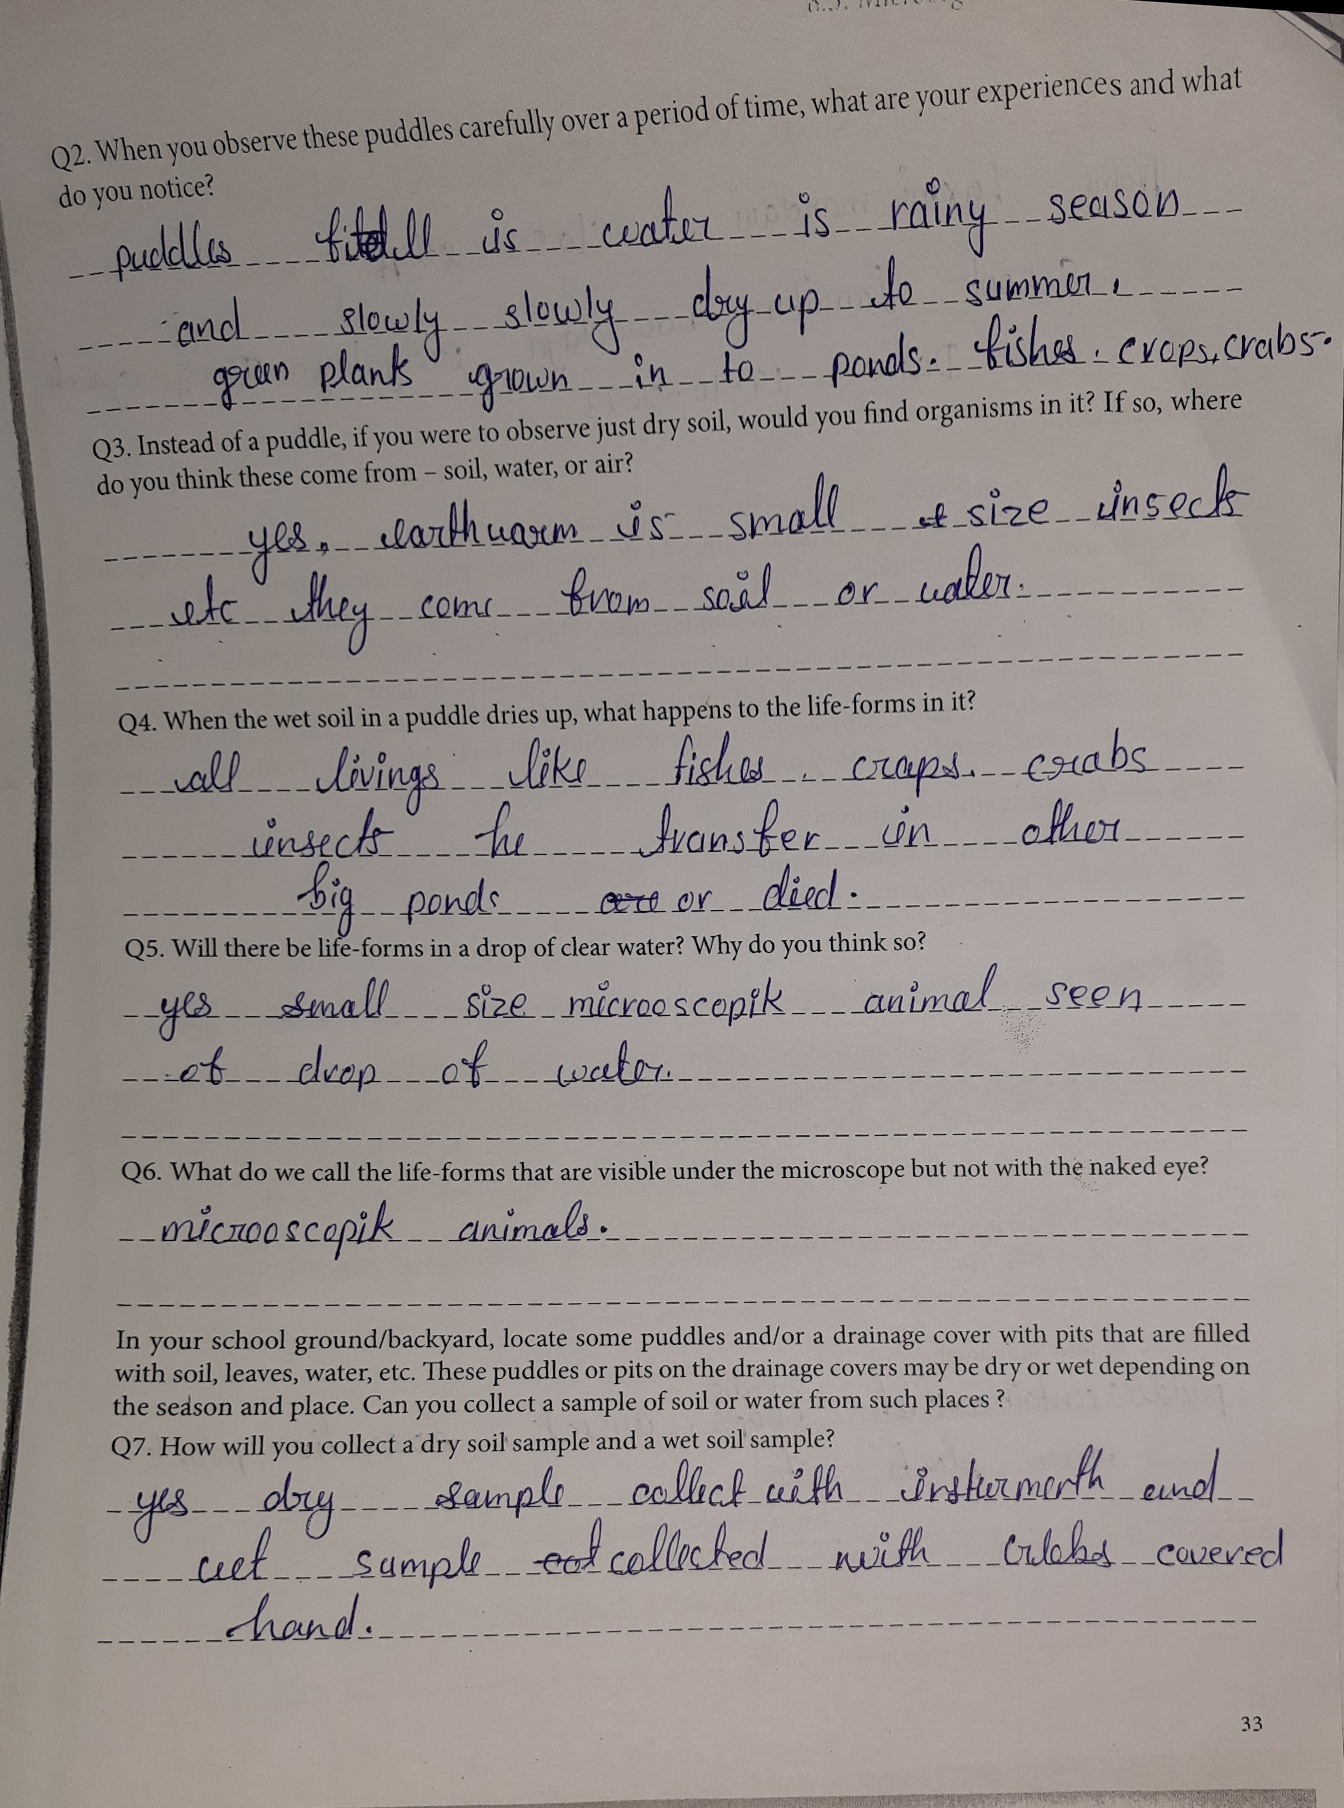 Q2. When you observe these puddles carefully over a period of time, what are your experiences and what
do you notice?
puddles fill is water is rainy season
and slowly slowly dry up to summer.
green plants grown in to ponds. fishes. craps, crabs.
Q3. Instead of a puddle, if you were to observe just dry soil, would you find organisms in it? If so, where
do you think these come from – soil, water, or air?
yes, earthwarm is small size insects
etc they come from soil or water.
Q4. When the wet soil in a puddle dries up, what happens to the life-forms in it?
all livings like fishes. craps. crabs
insects he transfer in other
big ponds or died.
Q5. Will there be life-forms in a drop of clear water? Why do you think so?
yes small size microoscopik animal seen
of drop of water.
Q6. What do we call the life-forms that are visible under the microscope but not with the naked eye?
microoscopik animals.
In your school ground/backyard, locate some puddles and/or a drainage cover with pits that are filled
with soil, leaves, water, etc. These puddles or pits on the drainage covers may be dry or wet depending on
the season and place. Can you collect a sample of soil or water from such places ?
Q7. How will you collect a dry soil sample and a wet soil sample?
yes dry sample collect with and
wet sample collected with covered
hand.
33